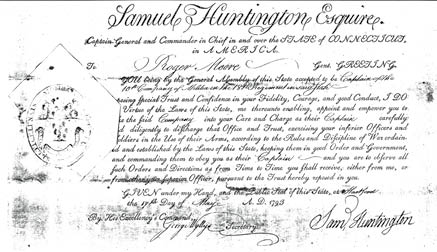 Samuel Huntington Esquire.
Captain-General and Commander in Chief in and over the STATE of CONNECTICUT,
in AMERICA.
To Roger Moore Gent. GREETING.
YOU being by the General Assembly of this State accepted to be Captain of the
10th Company of Militia in the Regiment in
special Trust and Confidence in your Fidelity, Courage, and good Conduct, I DO
Virtue of the Laws of this State, me thereunto enabling, appoint and empower you to
the said Company into your Care and Charge as their Captain carefully
and diligently to discharge that Office and Trust, exercising your inferior Officers and
Soldiers in the Use of their Arms, according to the Rules and Discipline of War
and established by the Laws of this State, keeping them in good Order and Government,
and commanding them to obey you as their Captain and you are to observe all
such Orders and Directions as from Time to Time you shall receive, either from me, or
Officer, pursuant to the Trust hereby reposed in you.
GIVEN under my Hand, and the Public Seal of this State, at Hartford
the 17th Day of May A. D. 1793
By His Excellency's Command,
George Wyllys Secretary
Sam Huntington